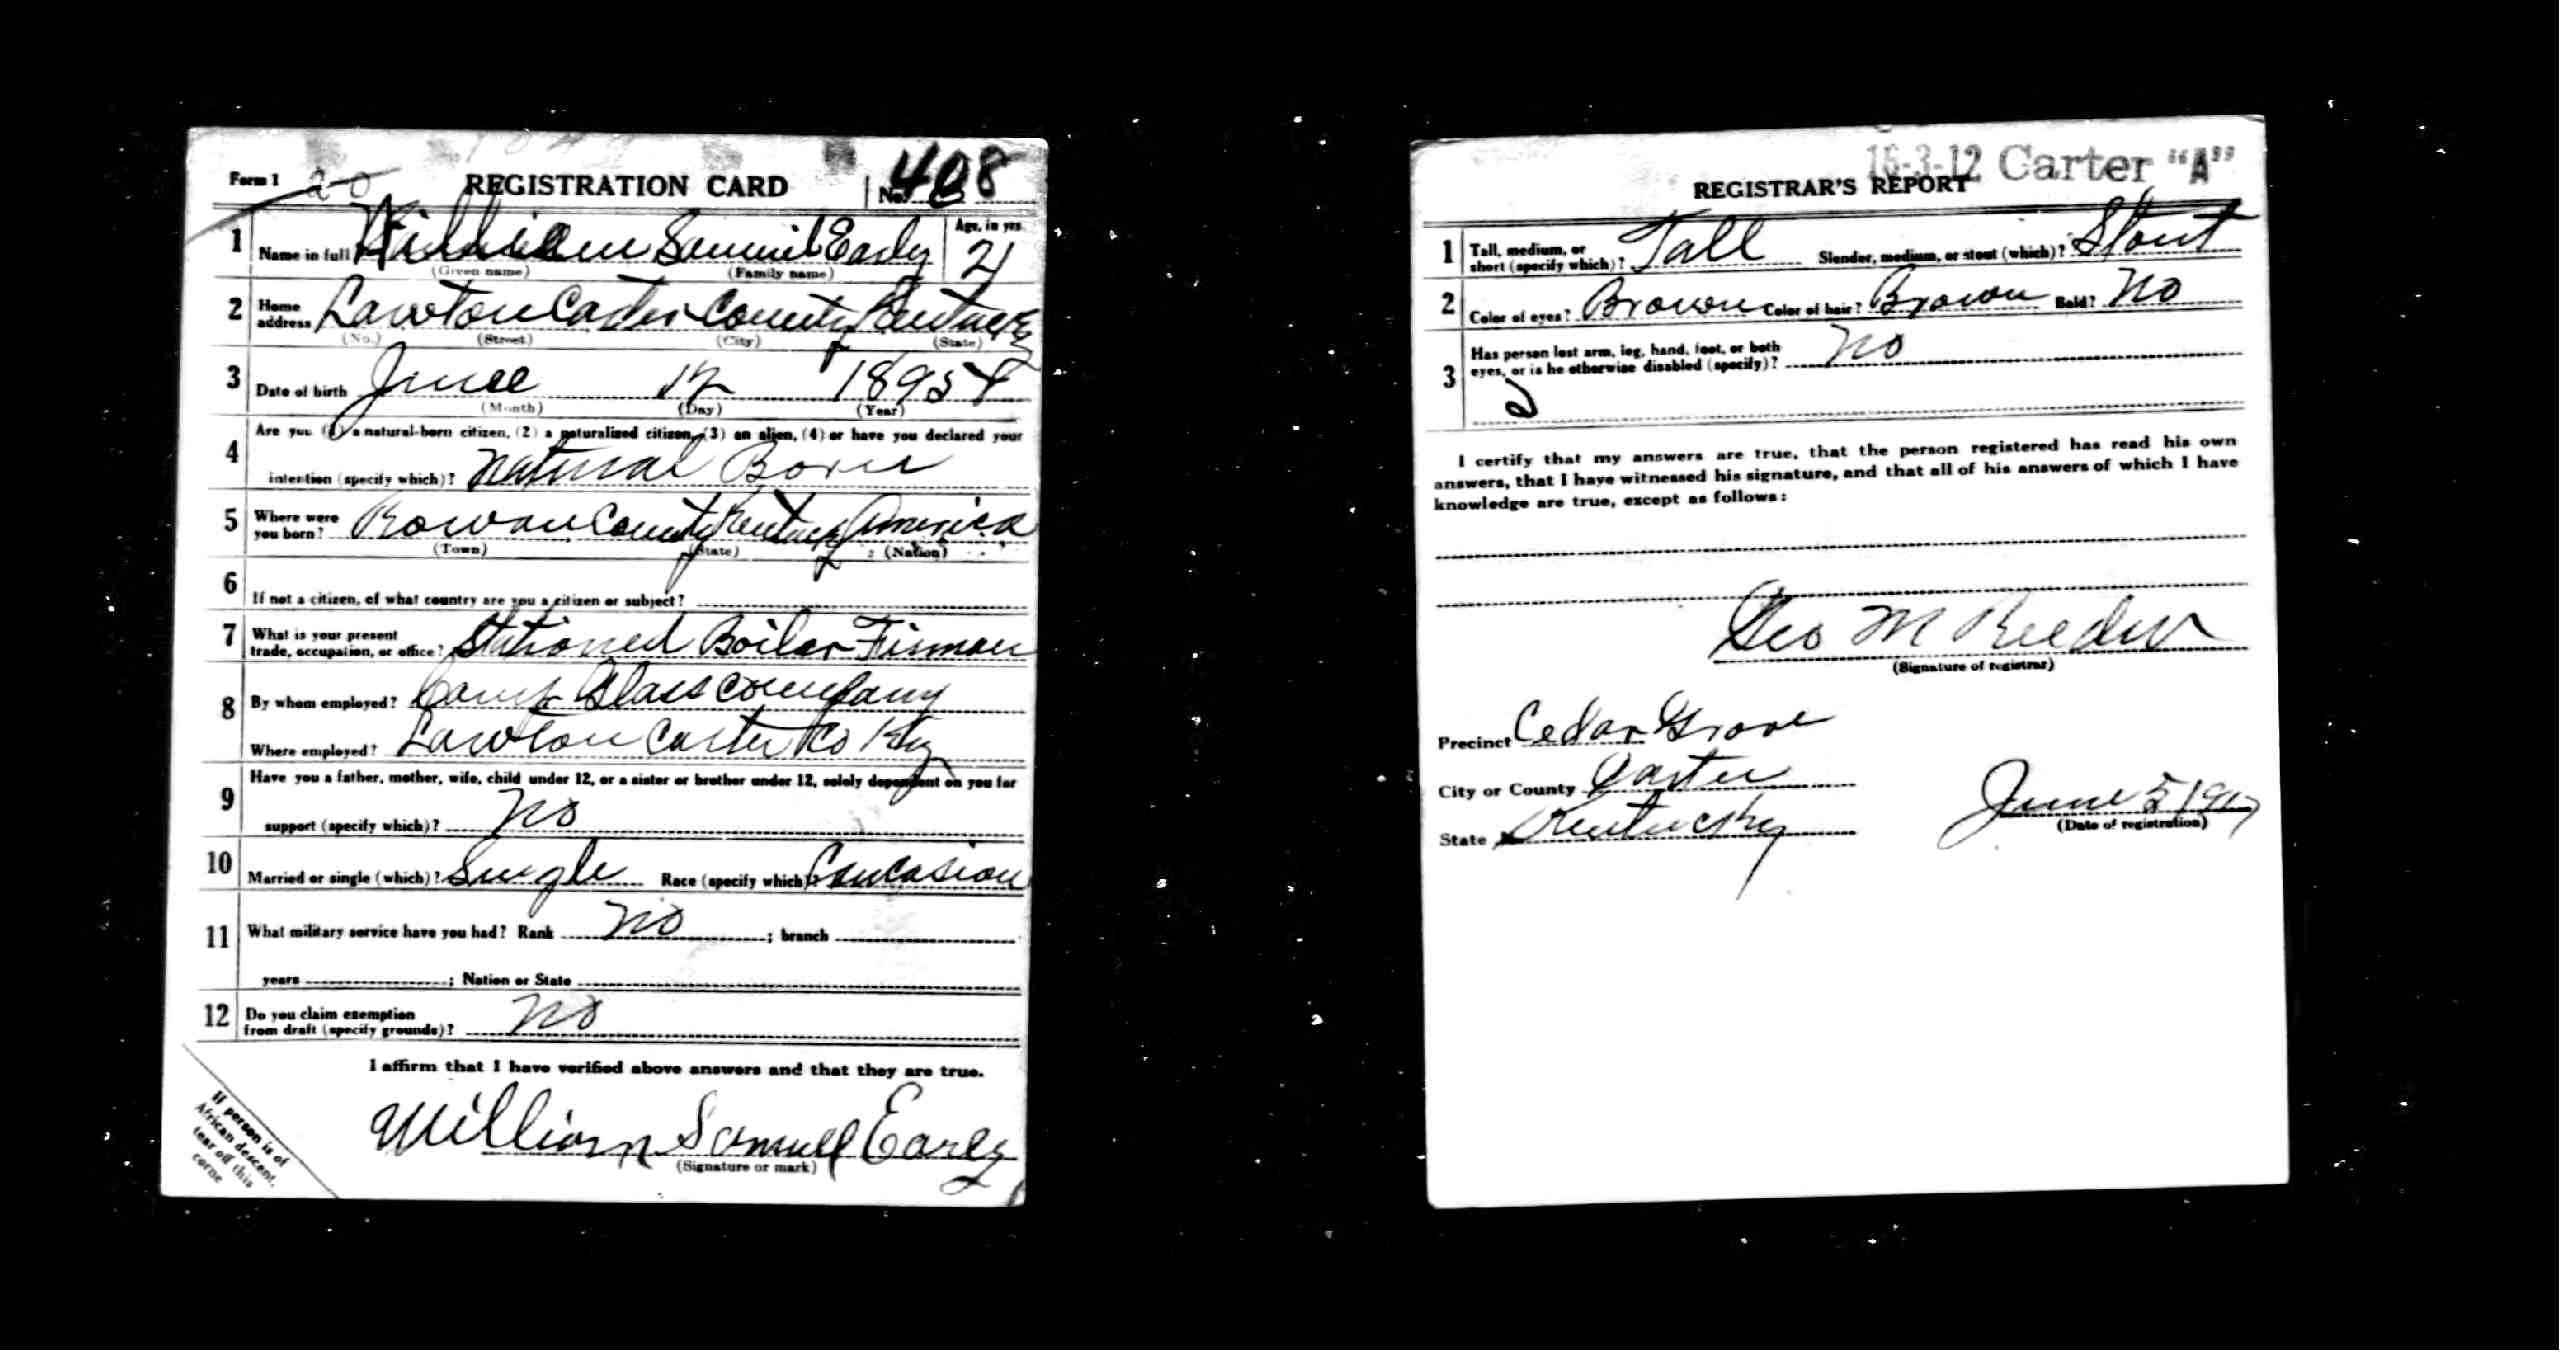 Form 1
20
REGISTRATION CARD
No. 408
1 Name in full William Samuel Early Age, in yrs. 21
(Given name) (Family name)
2 Home address Lawton Carter County Kentucky
(No.) (Street) (City) (State)
3 Date of birth June 12 1895
(Month) (Day) (Year)
4 Are you (1) a natural-born citizen, (2) a naturalized citizen, (3) an alien, (4) or have you declared your
intention (specify which)? Natural Born
5 Where were you born? Rowan County Kentucky America
(Town) (State) (Nation)
6 If not a citizen, of what country are you a citizen or subject?
7 What is your present trade, occupation, or office? Stationed Boilar Firman
8 By whom employed? Glass company
Where employed? Lawton Carter Co Ky
9 Have you a father, mother, wife, child under 12, or a sister or brother under 12, solely dependent on you for
support (specify which)? No
10 Married or single (which)? Single Race (specify which)? Caucasion
11 What military service have you had? Rank No ; branch
years ; Nation or State
12 Do you claim exemption from draft (specify grounds)? No
I affirm that I have verified above answers and that they are true.
William Samuel Early
(Signature or mark)
If person is of
African descent,
tear off this
corne
16-3-12 Carter "A"
REGISTRAR'S REPORT
1 Tall, medium, or short (specify which)? Tall Slender, medium, or stout (which)? Stout
2 Color of eyes? Brown Color of hair? Brown Bald? No
3 Has person lost arm, leg, hand, foot, or both
eyes, or is he otherwise disabled (specify)? No
I certify that my answers are true, that the person registered has read his own
answers, that I have witnessed his signature, and that all of his answers of which I have
knowledge are true, except as follows:
Geo M Reeder
(Signature of registrar)
Precinct Cedar Grove
City or County Carter
State Kentucky
June 5 1917
(Date of registration)